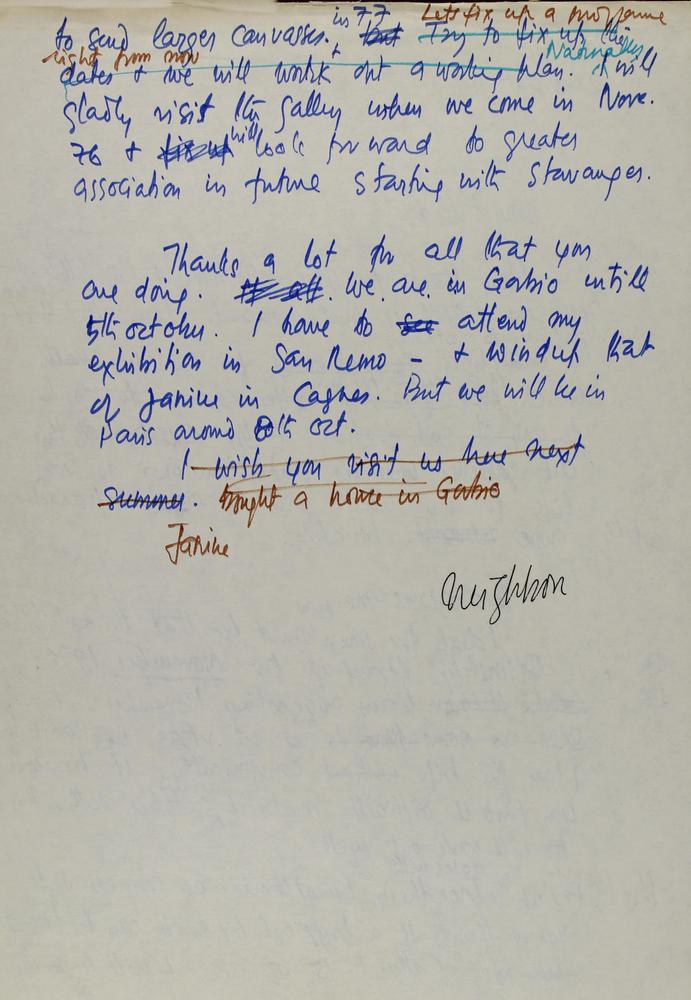 in 77 Lets fix up a programme
to send larger canvasses. + but Try to fix up the
right from now Naturally
dates + we will work out a working plan. I will
gladly visit the gallery when we come in Nove.
76 + fix up will look forward to greater
association in future starting with Stavanger.
Thanks a lot for all that you
are doing. We are in Gorbio untill
5th october. I have to see attend my
exhibition in San Remo - + windup that
of Janine in Cagnes. But we will be in
Paris around 8th oct.
I wish you visit us here next
summer. bought a house in Gorbio
Janine
neighbour